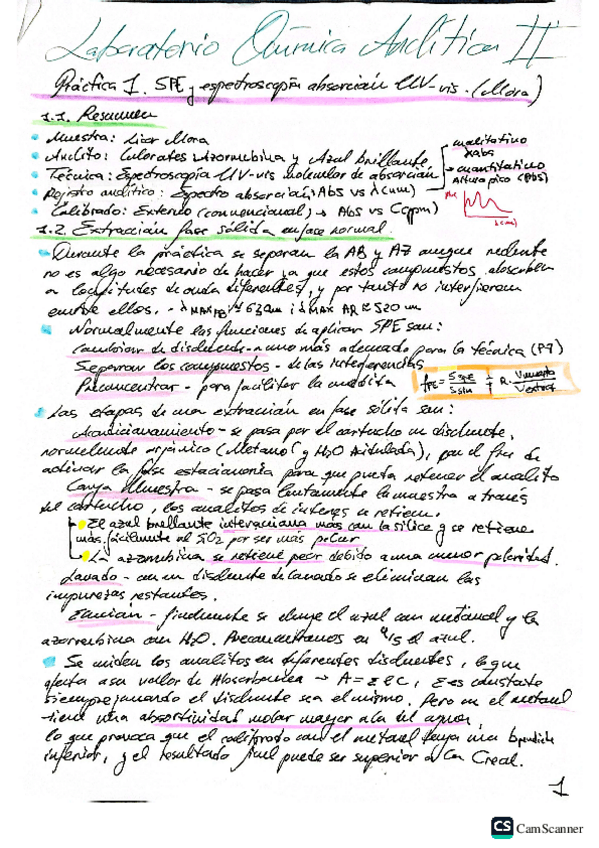 Laboratorio Química Analítica II
Práctica 1. SPE y espectroscopia absorción UV-vis. (Mora)
1.1. Resumen
Muestra: Licor Mora
Analito: Colorantes Azorrubina y Azul brillante
Técnica: Espectroscopia UV-vis molecular de absorción
Registro analítico: Espectro absorción, Abs vs λ(nm)
cualitativo
λabs
cuantitativo
Altura pico (Abs)
λ(nm)
Calibrado: Externo (convencional) → Abs vs C(ppm)
1.2. Extracción fase sólida en fase normal
Durante la práctica se separan la AB y AZ aunque realmente
no es algo necesario de hacer ya que estos compuestos absorben
a longitudes de onda diferentes, y por tanto no interfieren
entre ellos. - λ MAX AB ≈ 630nm ; λ MAX AR ≈ 520 nm
Normalmente las funciones de aplicar SPE son:
Cambiar de disolvente - a uno más adecuado para la técnica (P7)
Separar los compuestos - de las interferencias
Preconcentrar - para facilitar la medida
fPE = = R · Vmuestra
Vextract
Las etapas de una extracción en fase sólida son:
Acondicionamiento - se pasa por el cartucho un disolvente,
normalmente orgánico (Metanol y H2O Acidulada), con el fin de
activar la fase estacionaria para que pueda retener el analito
Carga Muestra - se pasa lentamente la muestra a través
del cartucho, los analitos de interés se retienen.
El azul brillante interacciona más con la sílice y se retiene
más fácilmente al SiO2 por ser más polar
La azorrubina se retiene peor debido a una menor polaridad.
Lavado - con un disolvente de lavado se eliminan las
impurezas restantes.
Elución - finalmente se eluye el azul con metanol y la
azorrubina con H2O. Preconcentramos en el azul.
Se miden los analitos en diferentes disolventes, lo que
afecta a su valor de Absorbancia → A = ε l C, ε es constante
siempre cuando el disolvente sea el mismo. Pero en el metanol
tiene una absortividad molar mayor a la del agua,
lo que provoca que el calibrado con el metanol tenga una pendiente
inferior, y el resultado final puede ser superior a la Creal.
1
CS CamScanner